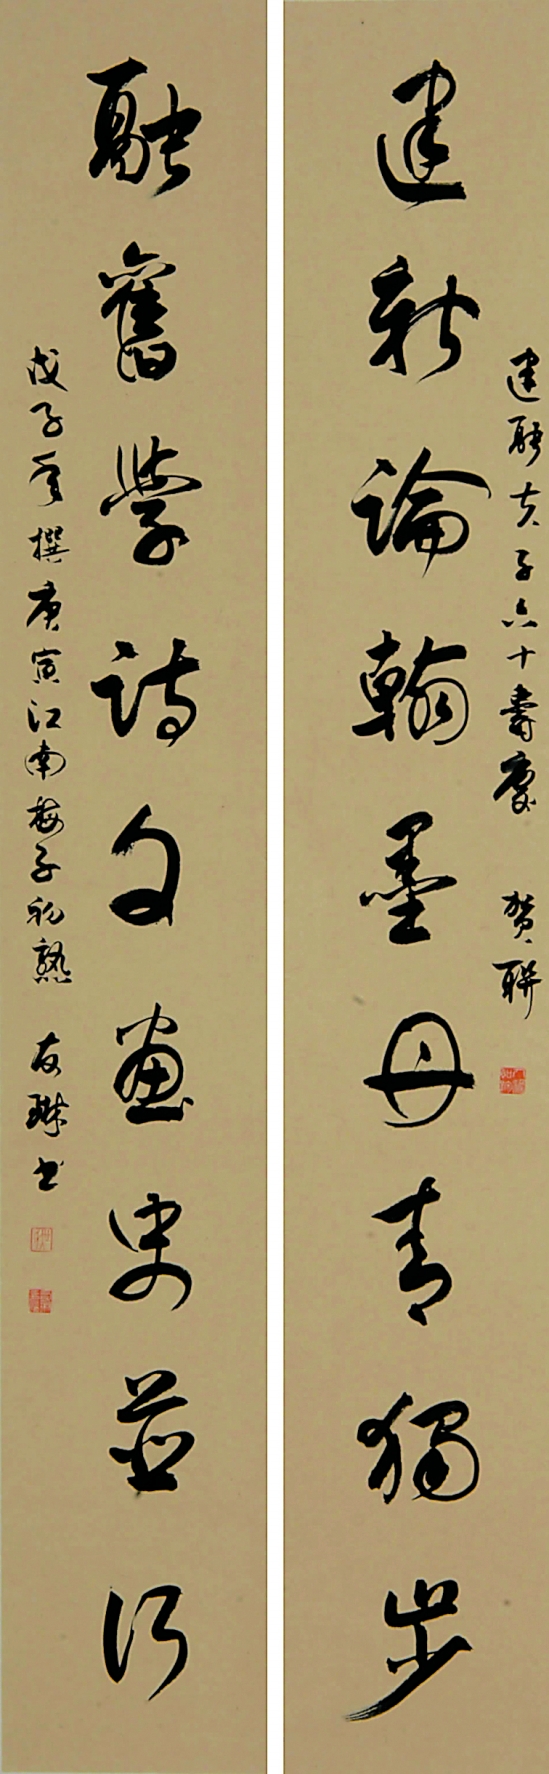 建融夫子六十壽慶 賀聯
建新論翰墨丹青獨步
融舊學詩文畫史並行
戊子年撰庚寅江南梅子初熟 友琳书